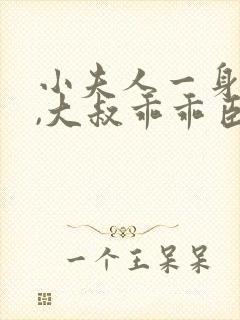 小夫人一身
,大叔乖乖臣
一个王呆呆